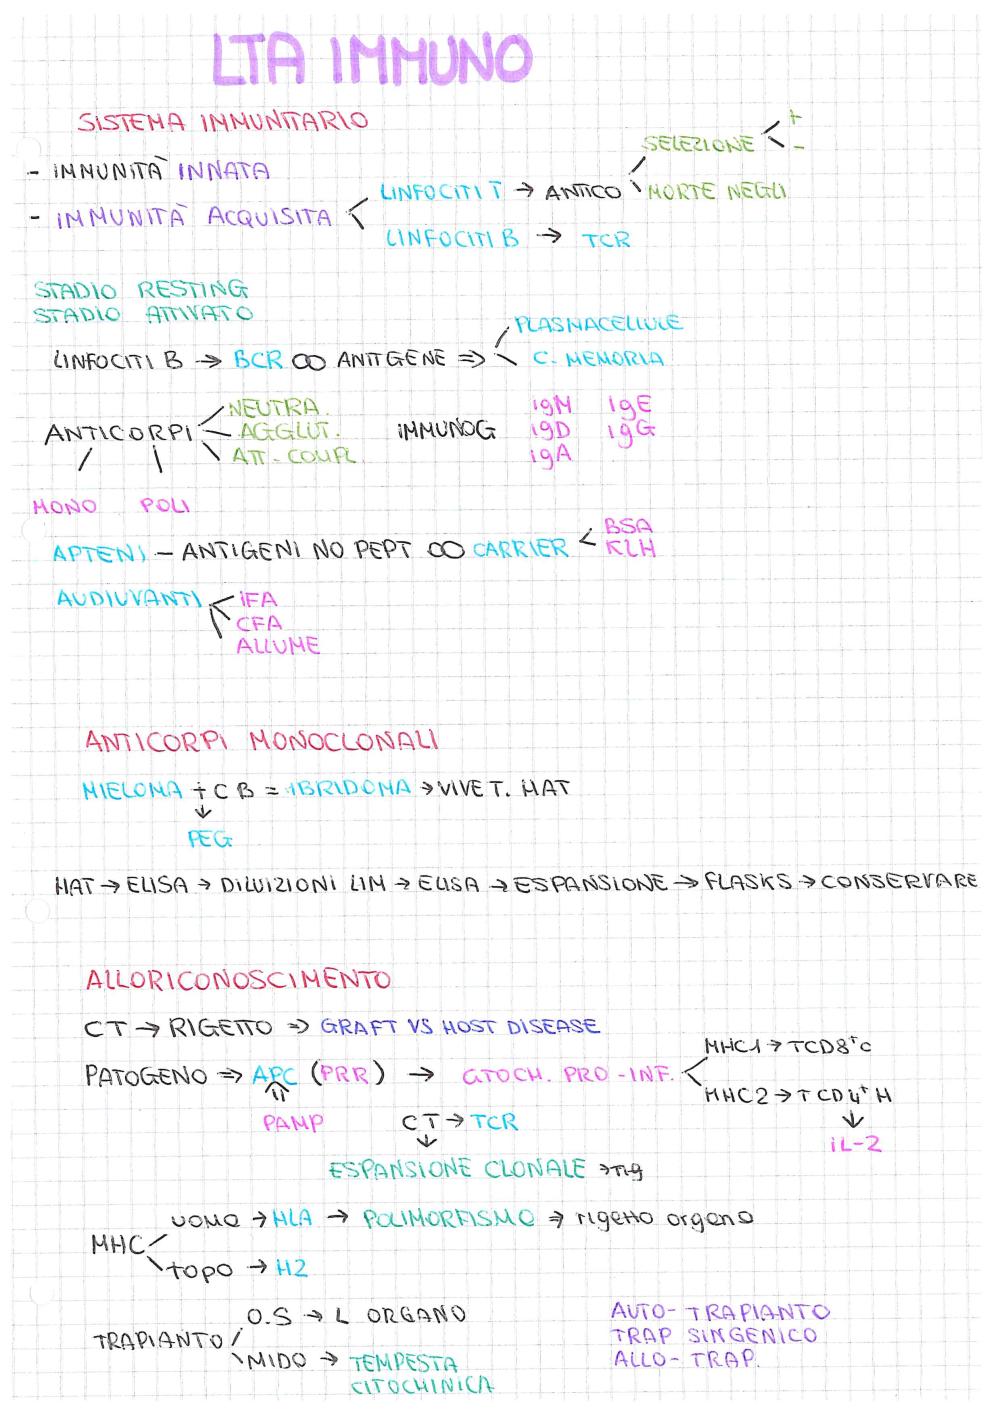 LTA IMMUNO
SISTEMA IMMUNITARIO
- IMMUNITÀ INNATA
- IMMUNITÀ ACQUISITA < LINFOCITI T → ANTICO < SELEZIONE < + -
MORTE NEGLI
LINFOCITI B → TCR
STADIO RESTING
STADIO ATTIVATO
LINFOCITI B → BCR ∞ ANTIGENE ⇒ PLASMACELLULE
C. MEMORIA
ANTICORPI < NEUTRA.
AGGLUT.
ATT-COMPL
IMMUNOG
igM igE
igD igG
igA
MONO POLI
APTENI - ANTIGENI NO PEPT ∞ CARRIER < BSA
KLH
AUDIUVANTI < iFA
CFA
ALLUME
ANTICORPI MONOCLONALI
MIELOMA + C B = IBRIDOMA → VIVE T. HAT
↓
PEG
HAT → ELISA → DILUIZIONI LIM → ELISA → ESPANSIONE → FLASKS → CONSERVARE
ALLORICONOSCIMENTO
CT → RIGETTO ⇒ GRAFT VS HOST DISEASE
PATOGENO ⇒ APC (PRR) → CITOCH. PRO-INF. < MHC1 → TCD8⁺C
MHC2 → TCD4⁺H
↓
iL-2
⇑
PAMP
CT → TCR
↓
ESPANSIONE CLONALE →
MHC < UOMO → HLA → POLIMORFISMO ⇒ rigetto organo
topo → H2
TRAPIANTO < O.S → L ORGANO
MIDO → TEMPESTA
CITOCHINICA
AUTO-TRAPIANTO
TRAP SINGENICO
ALLO-TRAP.